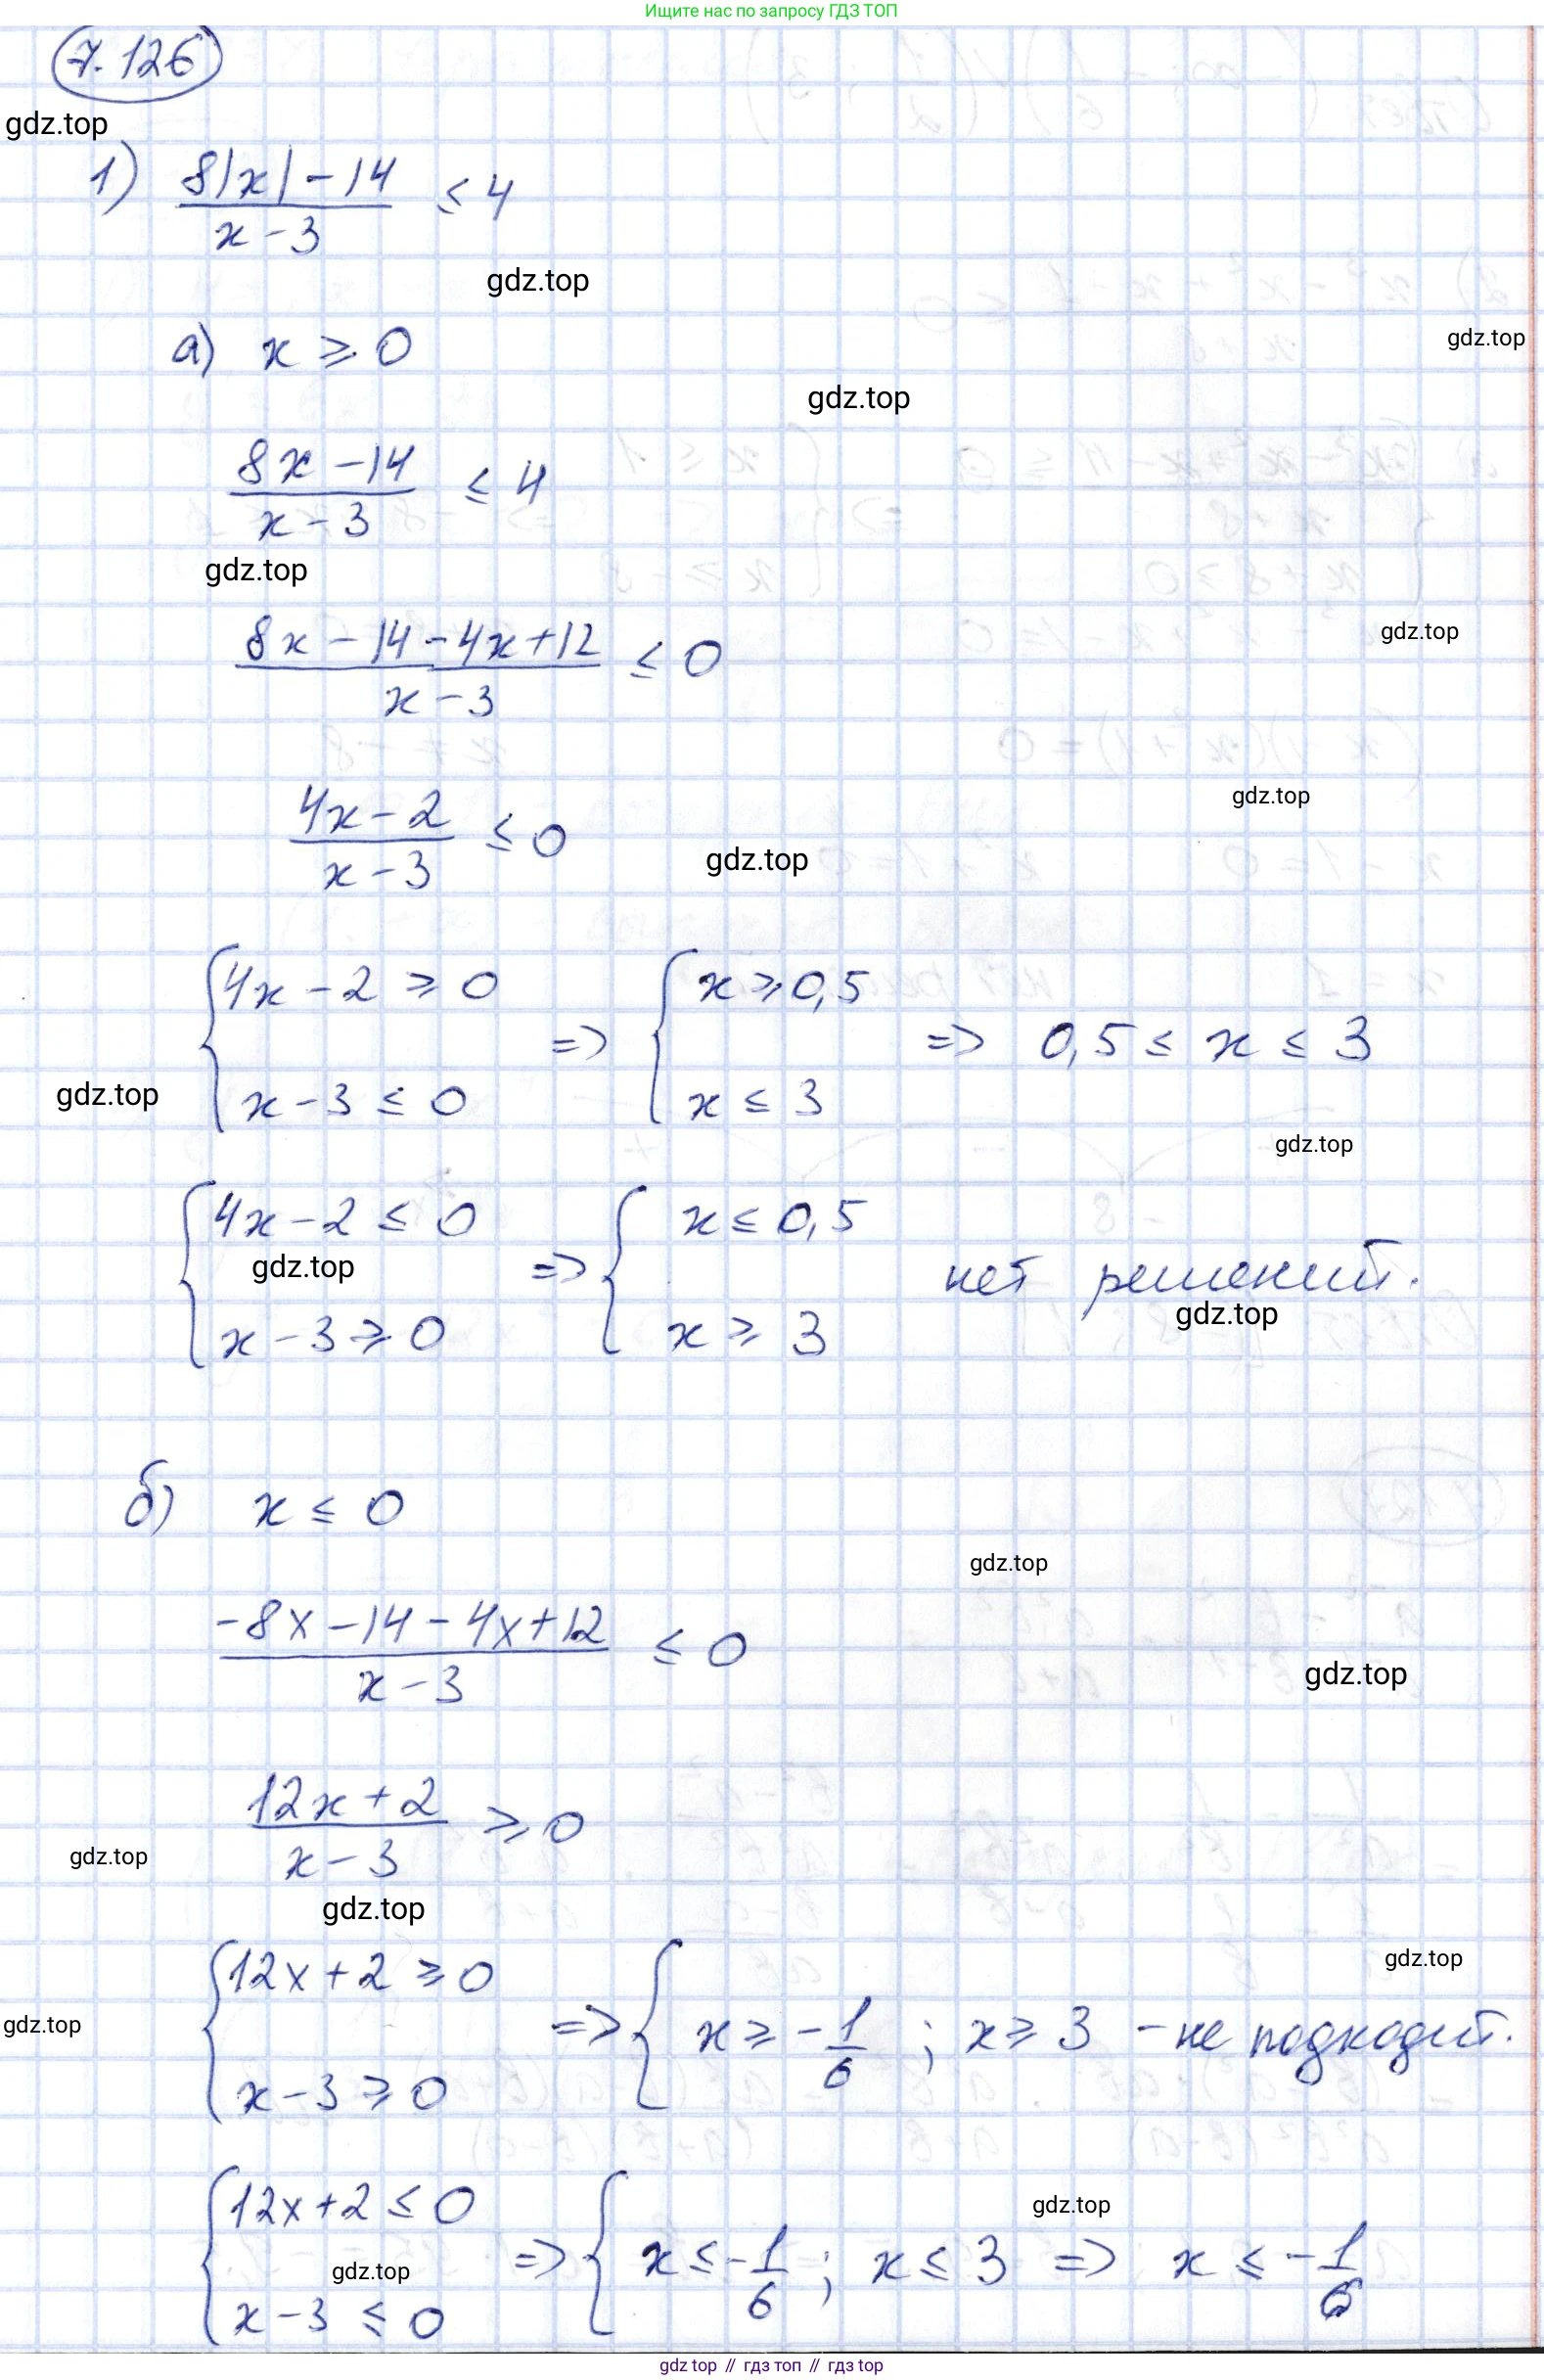 Ищите нас по запросу ГДЗ ТОП
7.126
gdz.top
1) (8|x| - 14)/(x - 3) ≤ 4
gdz.top
а) x ≥ 0
gdz.top
gdz.top
(8x - 14)/(x - 3) ≤ 4
gdz.top
(8x - 14 - 4x + 12)/(x - 3) ≤ 0
gdz.top
gdz.top
(4x - 2)/(x - 3) ≤ 0
gdz.top
{4x - 2 ≥ 0 ; x - 3 ≤ 0 => {x ≥ 0,5 ; x ≤ 3 => 0,5 ≤ x ≤ 3
gdz.top
gdz.top
{4x - 2 ≤ 0 ; x - 3 ≥ 0 => {x ≤ 0,5 ; x ≥ 3 нет решений.
gdz.top
gdz.top
б) x ≤ 0
gdz.top
(-8x - 14 - 4x + 12)/(x - 3) ≤ 0
gdz.top
(12x + 2)/(x - 3) ≥ 0
gdz.top
gdz.top
gdz.top
{12x + 2 ≥ 0 ; x - 3 ≥ 0 => {x ≥ -1/6 ; x ≥ 3 - не подходит.
gdz.top
gdz.top
{12x + 2 ≤ 0 ; x - 3 ≤ 0 => {x ≤ -1/6 ; x ≤ 3 => x ≤ -1/6
gdz.top
gdz top // гдз топ // гдз top